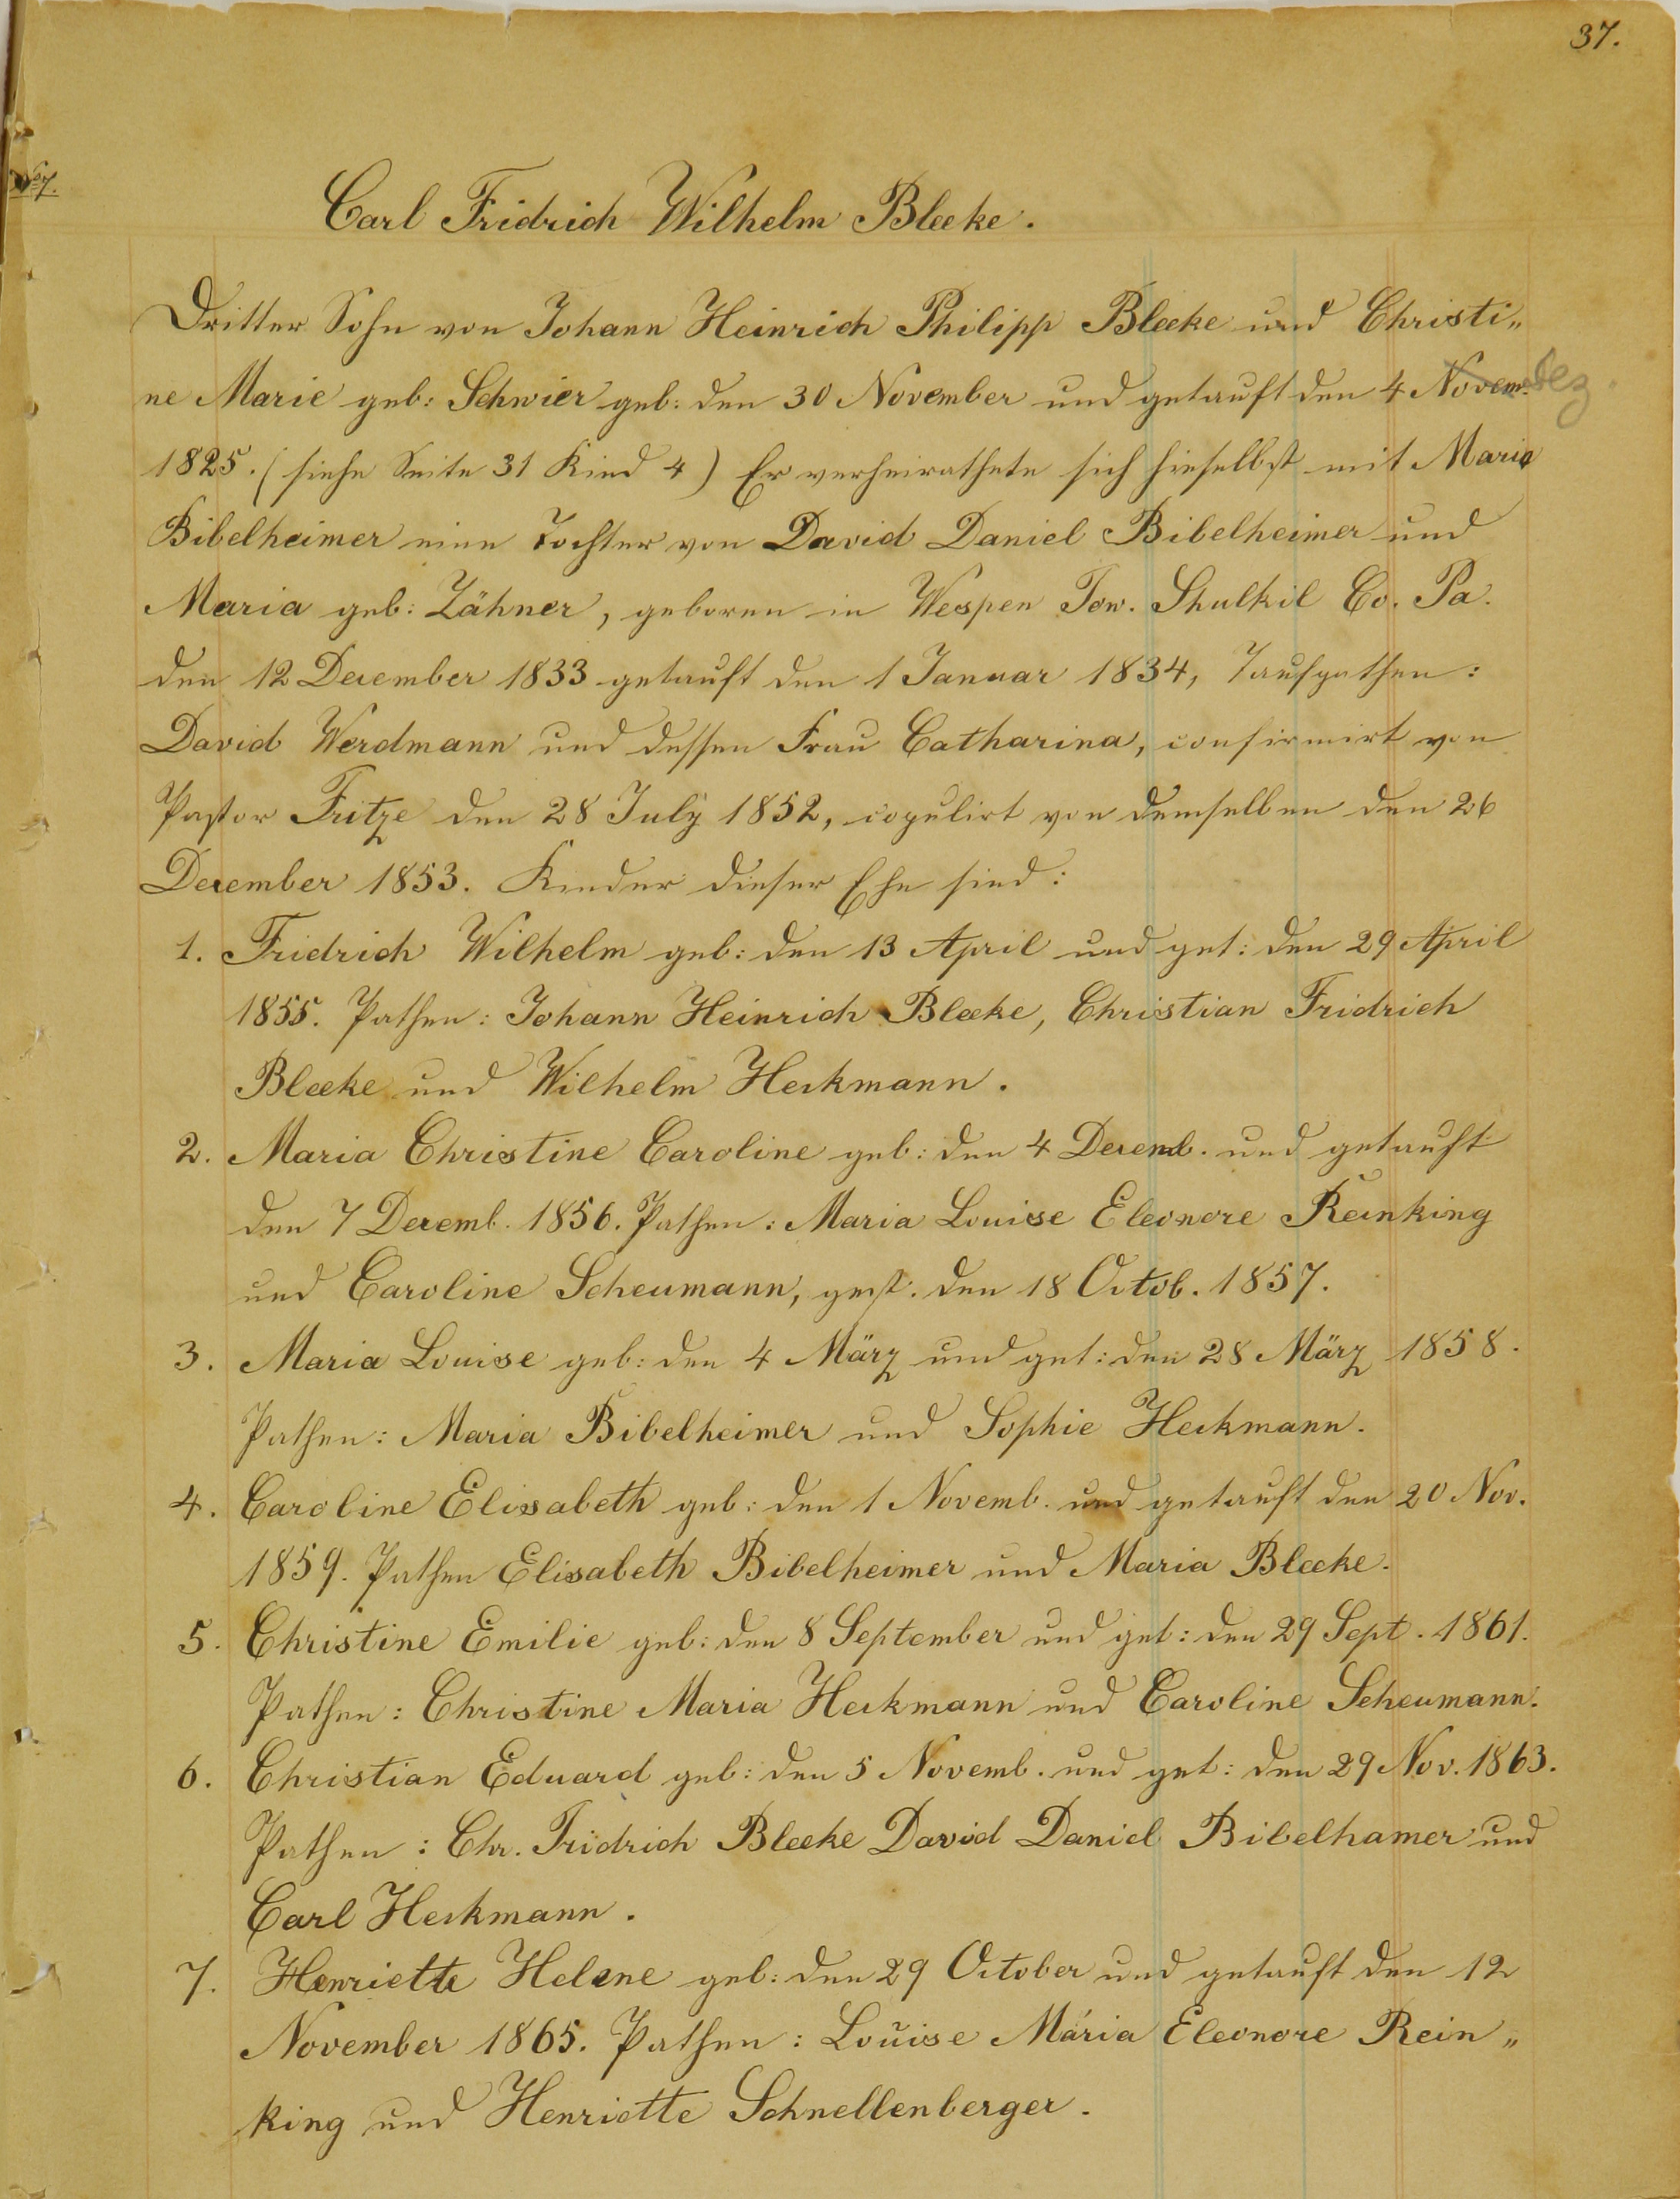 37.
No 7.
Carl Fridrich Wilhelm Bleeke.
Dritter Sohn von Johann Heinrich Philipp Bleeke und Christi„
ne Marie geb: Schwier geb: den 30 November und getauft den 4 Novem. Dez.
1825. (siehe Seite 31 Kind 4) Er verheirathete sich hieselbst mit Maria
Bibelheimer eine Tochter von David Daniel Bibelheimer und
Maria geb: Zähner, geboren in Wespen Tow. Shulkil Co. Pa.
den 12 December 1833 getauft den 1 Januar 1834, Taufpathen:
David Werdmann und dessen Frau Catharina, confirmirt von
Pastor Fritze den 28 July 1852, copulirt von demselben den 26
December 1853. Kinder dieser Ehe sind:
1. Fridrich Wilhelm geb: den 13 April und get: den 29 April
1855. Pathen: Johann Heinrich Bleeke, Christian Fridrich
Bleeke und Wilhelm Heckmann.
2. Maria Christine Caroline geb: den 4 Decemb. und getauft
den 7 Decemb. 1856. Pathen: Maria Louise Eleonore Reinking
und Caroline Scheumann, gest. den 18 Octob. 1857.
3. Maria Louise geb: den 4 März und get: den 28 März 1858.
Pathen: Maria Bibelheimer und Sophie Heckmann.
4. Caroline Elisabeth geb: den 1 Novemb. und getauft den 20 Nov.
1859. Pathen Elisabeth Bibelheimer und Maria Bleeke.
5. Christine Emilie geb: den 8 September und get: den 29 Sept. 1861.
Pathen: Christine Maria Heckmann und Caroline Scheumann.
6. Christian Eduard geb: den 5 Novemb. und get: den 29 Nov. 1863.
Pathen: Chr. Fridrich Bleeke David Daniel Bibelhamer und
Carl Heckmann.
7. Henriette Helene geb: den 29 October und getauft den 12
November 1865. Pathen: Louise Maria Eleonore Rein„
king und Henriette Schnellenberger.